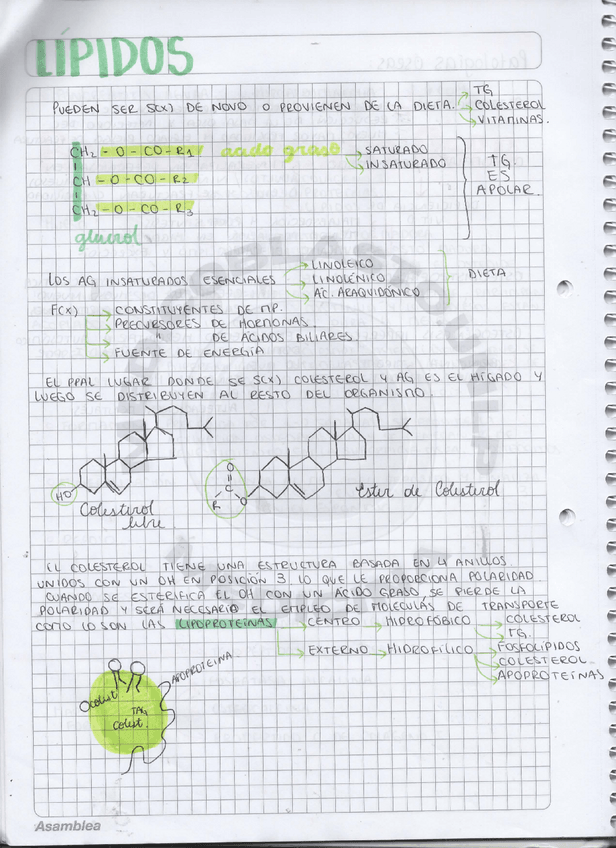 LÍPIDOS
PUEDEN SER S(X) DE NOVO O PROVIENEN DE LA DIETA.
TG
COLESTEROL
VITAMINAS.
CH2 - O - CO - R1
acido graso
SATURADO
INSATURADO
CH - O - CO - R2
CH2 - O - CO - R3
TG
ES
APOLAR
glicerol
LOS AG INSATURADOS ESENCIALES
LINOLEICO
LINOLÉNICO
AC. ARAQUIDÓNICO
DIETA
F(X)
CONSTITUYENTES DE MP.
PRECURSORES DE HORMONAS.
" DE ÁCIDOS BILIARES.
FUENTE DE ENERGÍA
EL PPAL LUGAR DONDE SE S(X) COLESTEROL Y AG ES EL HÍGADO Y
LUEGO SE DISTRIBUYEN AL RESTO DEL ORGANISMO.
HO
Colesterol
libre
O
C
R
O
Ester de Colesterol
EL COLESTEROL TIENE UNA ESTRUCTURA BASADA EN 4 ANILLOS
UNIDOS CON UN OH EN POSICIÓN 3 LO QUE LE PROPORCIONA POLARIDAD
CUANDO SE ESTERIFICA EL OH CON UN ÁCIDO GRASO, SE PIERDE LA
POLARIDAD Y SERÁ NECESARIO EL EMPLEO DE MOLECULAS DE TRANSPORTE
COMO LO SON LAS LIPOPROTEÍNAS
CENTRO
HIDROFÓBICO
COLESTEROL
TG.
EXTERNO
HIDROFÍLICO
FOSFOLÍPIDOS
COLESTEROL
APOPROTEÍNAS
APOPROTEINA
colest
TAG
Colest.
Asamblea